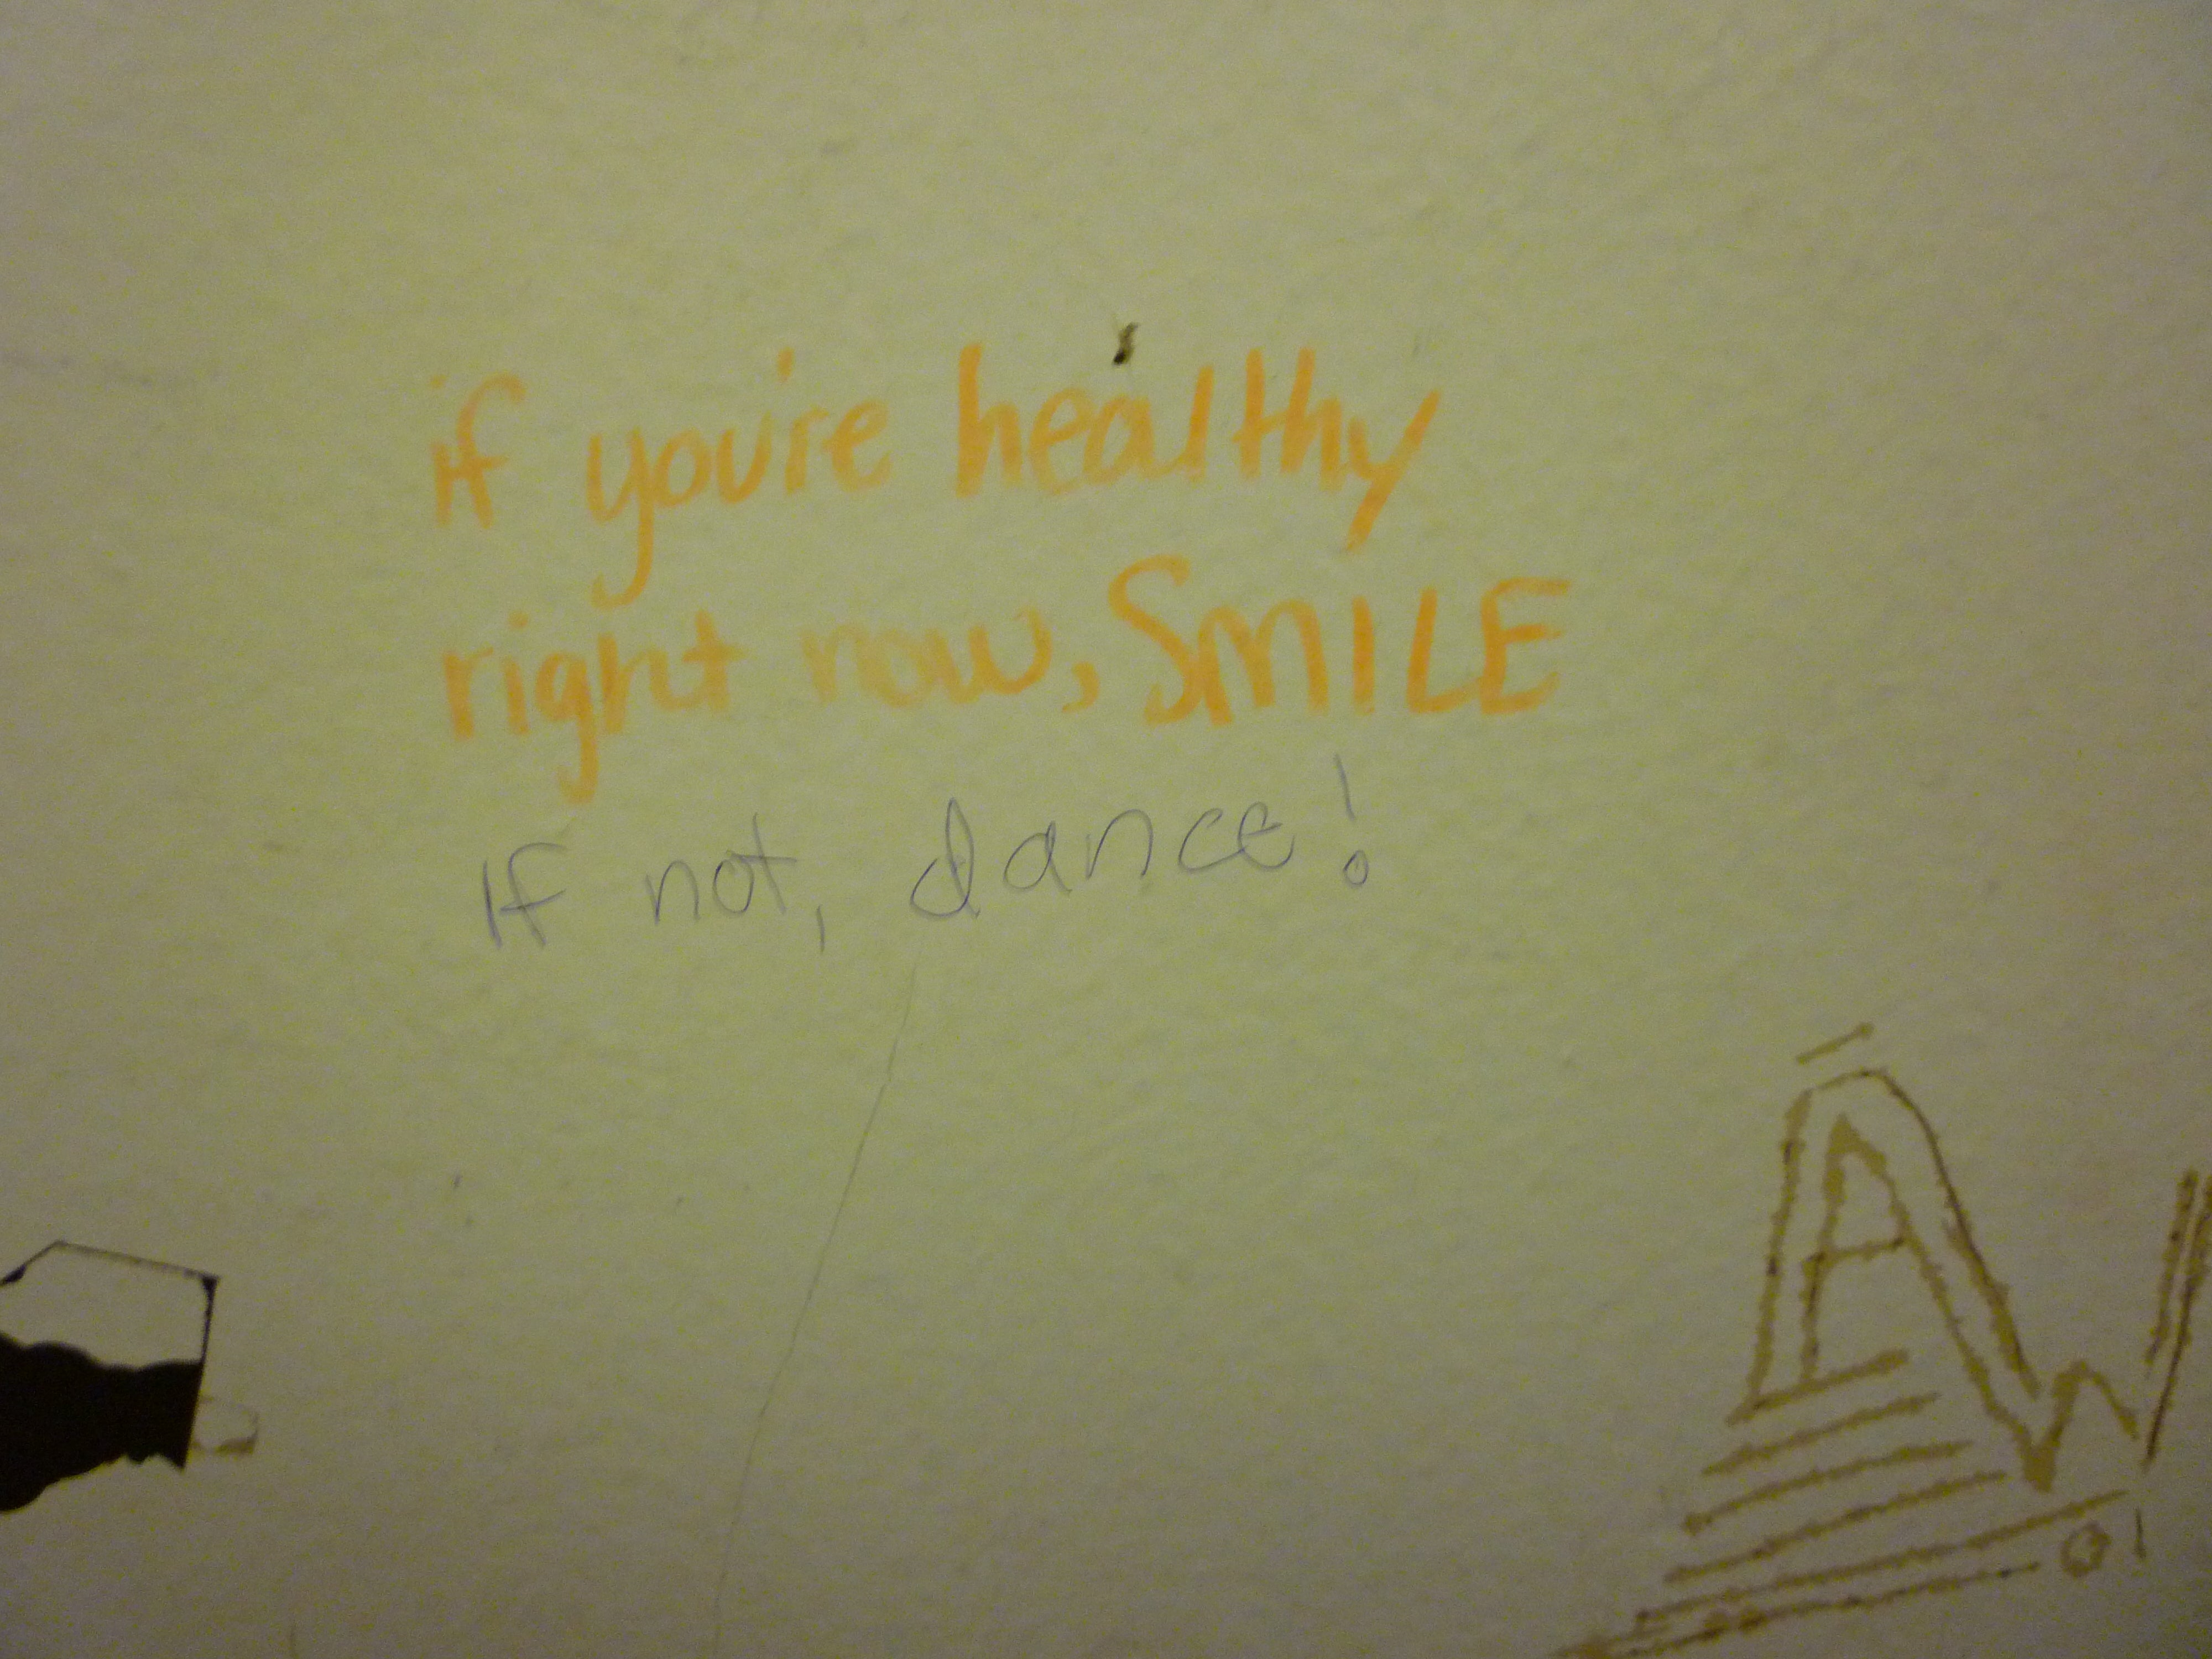 if you're healthy
right now, SMILE
If not, dance!